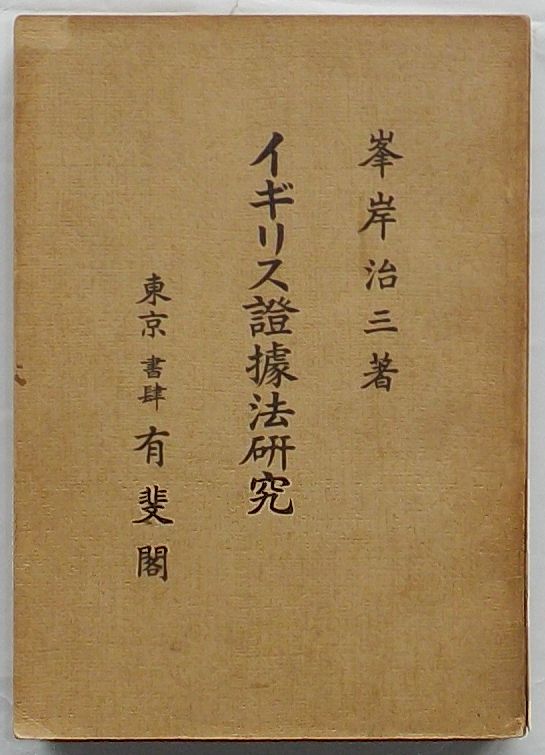 峯岸治三著
イギリス證據法研究
東京 書肆 有斐閣